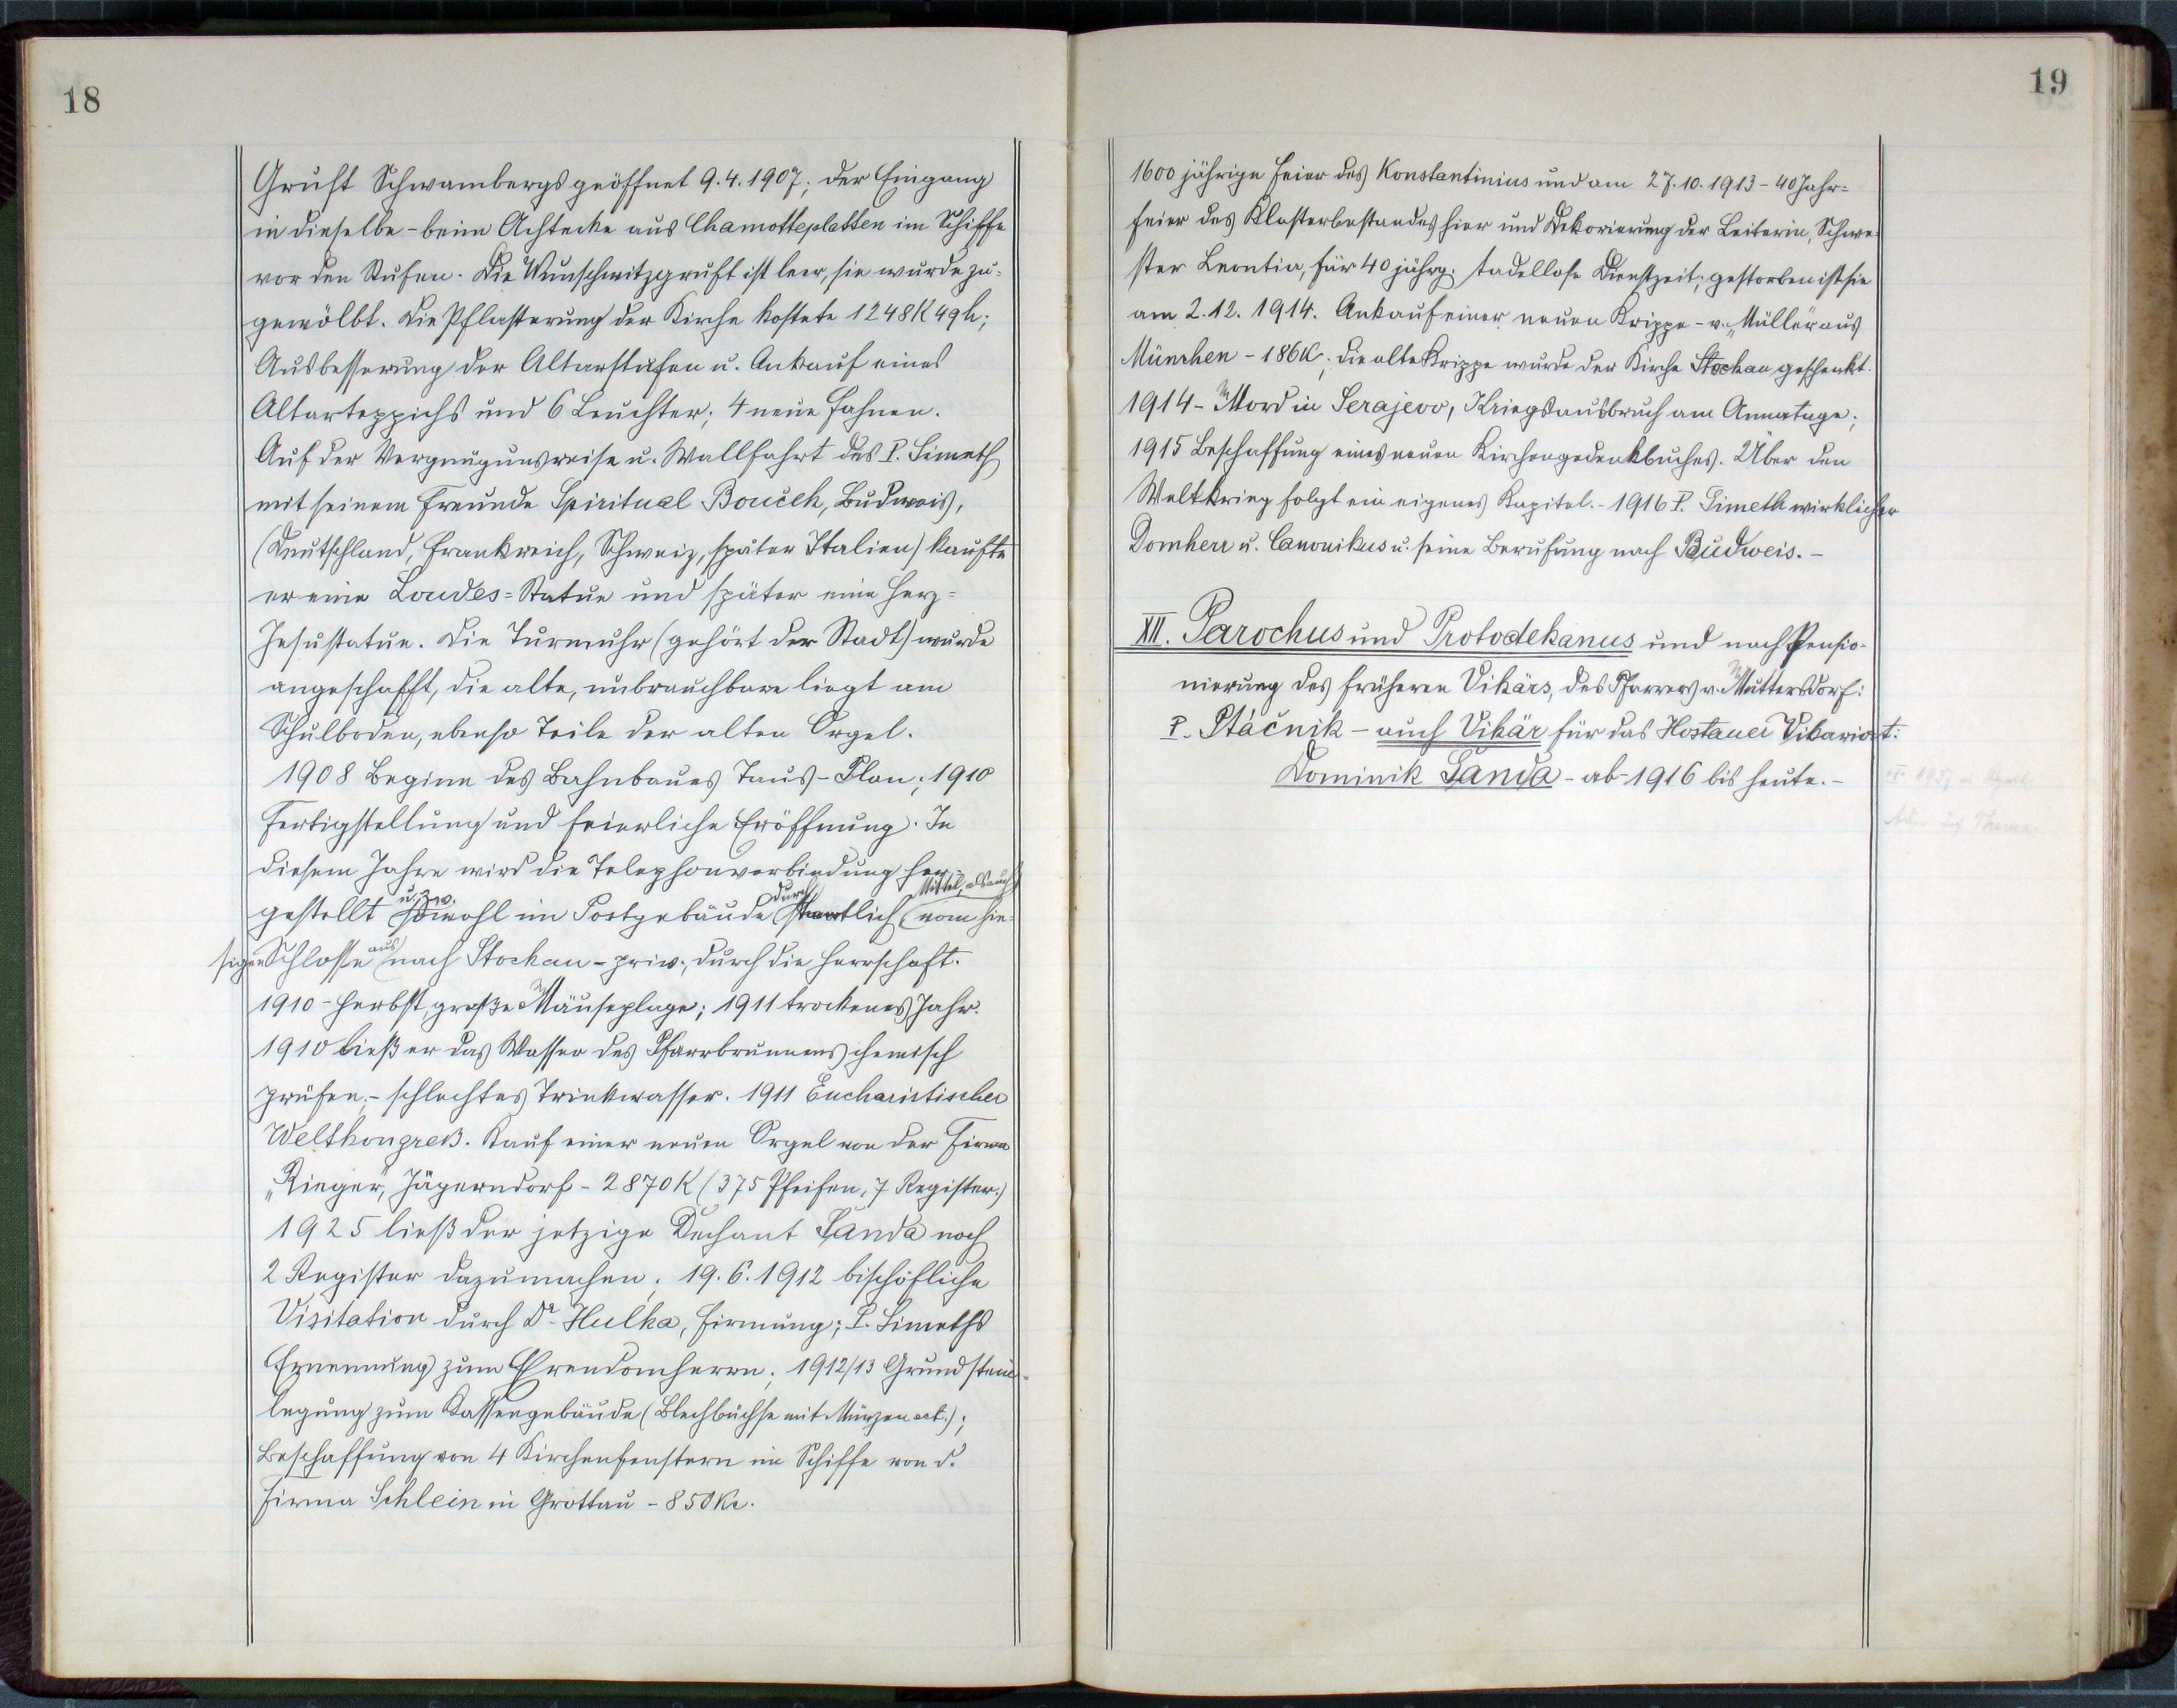 18
Gruft Schwambergs geöffnet 9.4.1907; der Eingang
in dieselbe - beim Achtecke aus Chamotteplatten im Schiffe
vor den Stufen. Die Wunschwitzgruft ist leer, sie wurde zu-
gewölbt. Die Pflasterung der Kirche kostete 1248 K 49 h;
Ausbesserung der Altarstufen u. Ankauf eines
Altarteppichs und 6 Leuchter; 4 neue Fahnen.
Auf der Vergnügunsreise u. Wallfahrt des P. Simeth
mit seinem Freunde Spiritual Bouček, Budweis,
(Deutschland, Frankreich, Schweiz, später Italien) kaufte
er eine Loudes-Statue und später eine Herz-
Jesustatue. Die Turmuhr (gehört der Stadt) wurde
angeschafft, die alte, unbrauchbare liegt am
Schulboden, ebenso Teile der alten Orgel.
1908 Beginn des Bahnbaues Taus-Plan; 1910
Fertigstellung und feierliche Eröffnung. In
diesem Jahre wird die Telephonverbindung her-
gestellt u. zw. sowohl im Postgebäude durch staatlich. Mittel, als auch vom hie-
sigen Schlosse aus nach Stockau - priv., durch die Herrschaft.
1910 - Herbst, große Mäuseplage; 1911 trockenes Jahr.
1910 ließ er das Wasser des Pfarrbrunnens chemisch
prüfen; - schlechtes Trinkwasser. 1911 Eucharistischer
Weltkongreß. Kauf einer neuen Orgel von der Firma
„Rieger", Jägerndorf - 2870 K (375 Pfeifen, 7 Register.)
1925 ließ der jetzige Dechant Šanda noch
2 Register dazumachen. 19.6.1912 bischöfliche
Visitation durch Dr. Hulka, Firmung; P. Simeths
Ernennung zum Ehrendomherrn; 1912/13 Grundstein-
legung zum Kassengebäude (Blechbüchse mit Münzen ect.);
Beschaffung von 4 Kirchenfenstern im Schiffe von d.
Firma Schlein in Grottau - 850 Kr.
19
1600 jährige Feier des Konstantinius und am 27.10.1913 - 40 Jahr-
feier des Klosterbestandes hier und Dekorierung der Leiterin, Schwe-
ster Leontia, für 40 jährg. tadellose Dienstzeit; gestorben ist sie
am 2.12.1914. Ankauf einer neuen Krippe - v. „Müller" aus
München - 186 K; die alte Krippe wurde der Kirche Stockau geschenkt.
1914 - Mord in Serajevo, Kriegsausbruch am Annatage;
1915 Beschaffung eines neuen Kirchengedenkbuches. Über den
Weltkrieg folgt ein eigenes Kapitel. - 1916 P. Simeth wirklicher
Domherr u. Canonikus u. seine Berufung nach Budweis. -
XII. Parochus und Protodekanus und nach Pensio-
nierung des früheren Vikärs, des Pfarrers v. Muttersdorf:
P. Ptáčnik - auch Vikär für das Hostauer Vikariat:
Dominik Šanda - ab 1916 bis heute. -